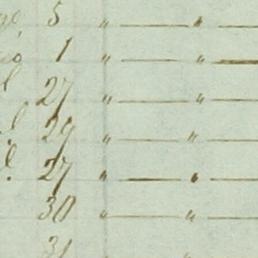 5 " — " —
1 " — " —
27 " — " —
29 " — " —
27 " — " —
30 " — " —
31 "